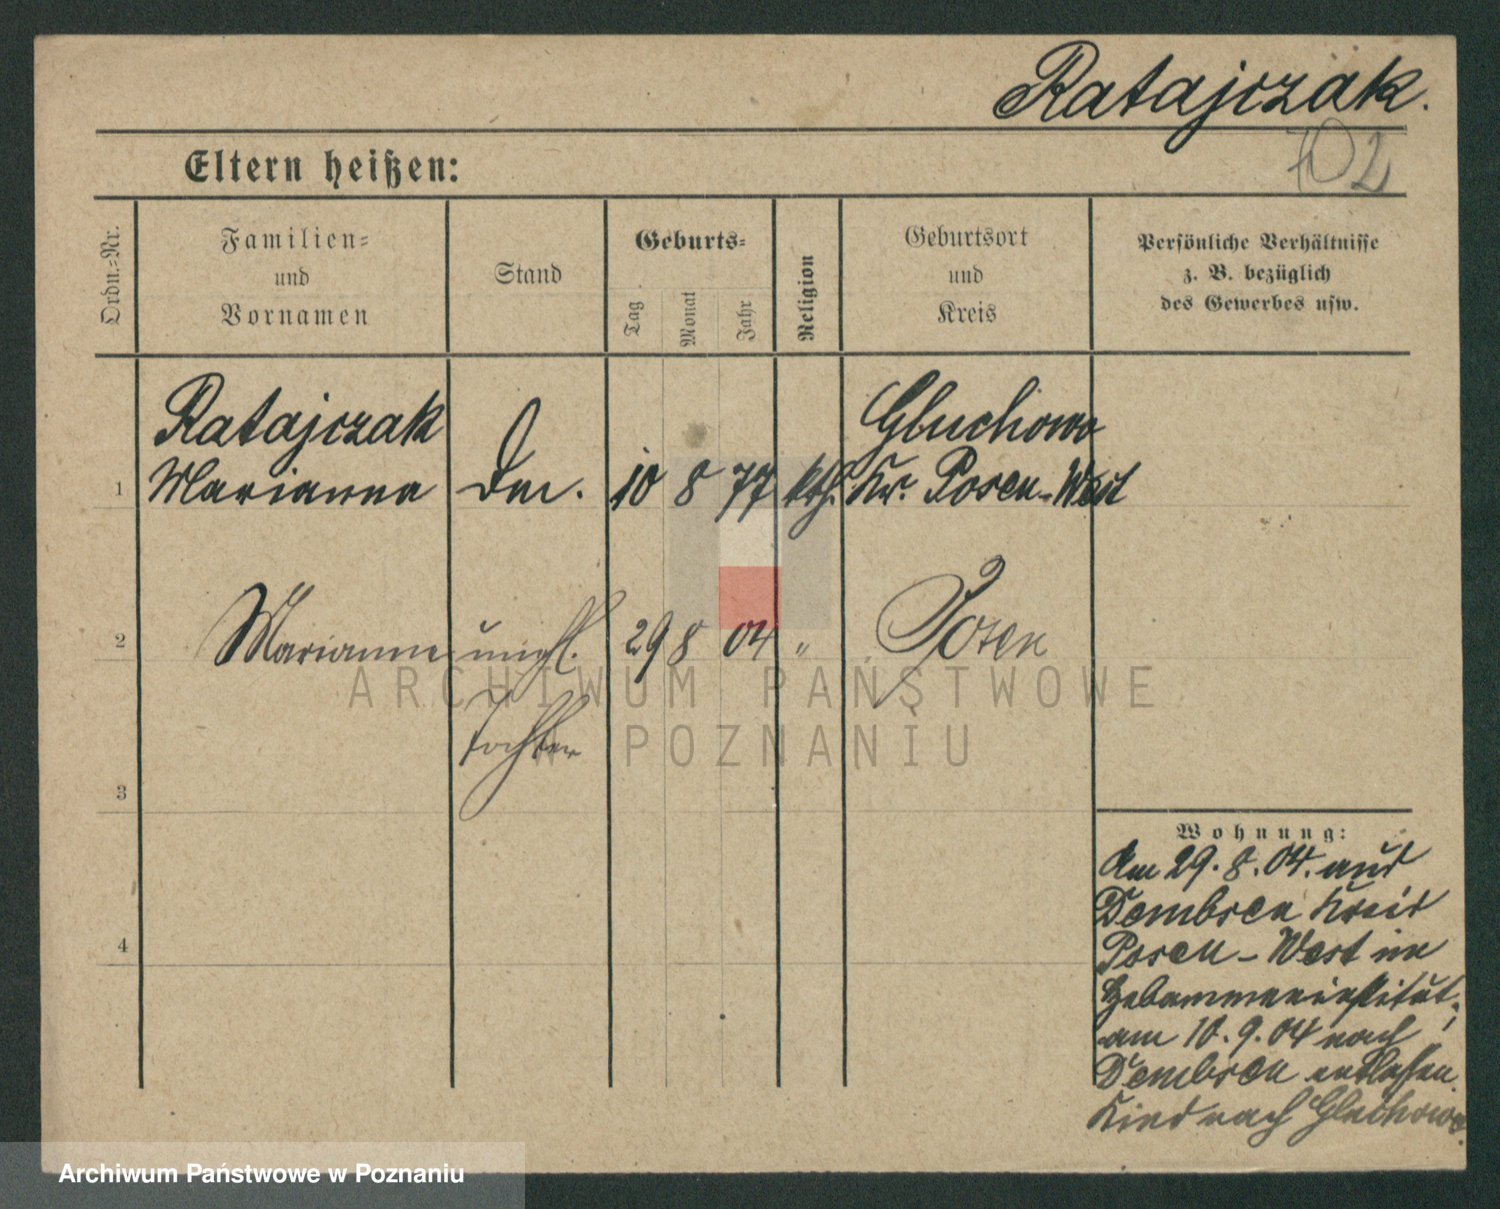 Ratajczak.
702
Eltern heißen:
Ordn.-Nr.
Familien-
und
Vornamen
Stand
Geburts-
Tag
Monat
Jahr
Religion
Geburtsort
und
Kreis
Persönliche Verhältnisse
z. B. bezüglich
des Gewerbes usw.
Ratajczak
Gluchowo
1 Marianna 10 8 77 kth. Kr. Posen-West
2 Marianne unehl. 29 8 04 " Posen
Tochter
3
4
Wohnung:
Am 29.8.04. aus
Dembsen Kreis
Posen-West im
Hebammeninstitut,
am 10.9.04 nach
Dembsen entlassen.
Kind nach Gluchowo.
ARCHIWUM PAŃSTWOWE
W POZNANIU
Archiwum Państwowe w Poznaniu